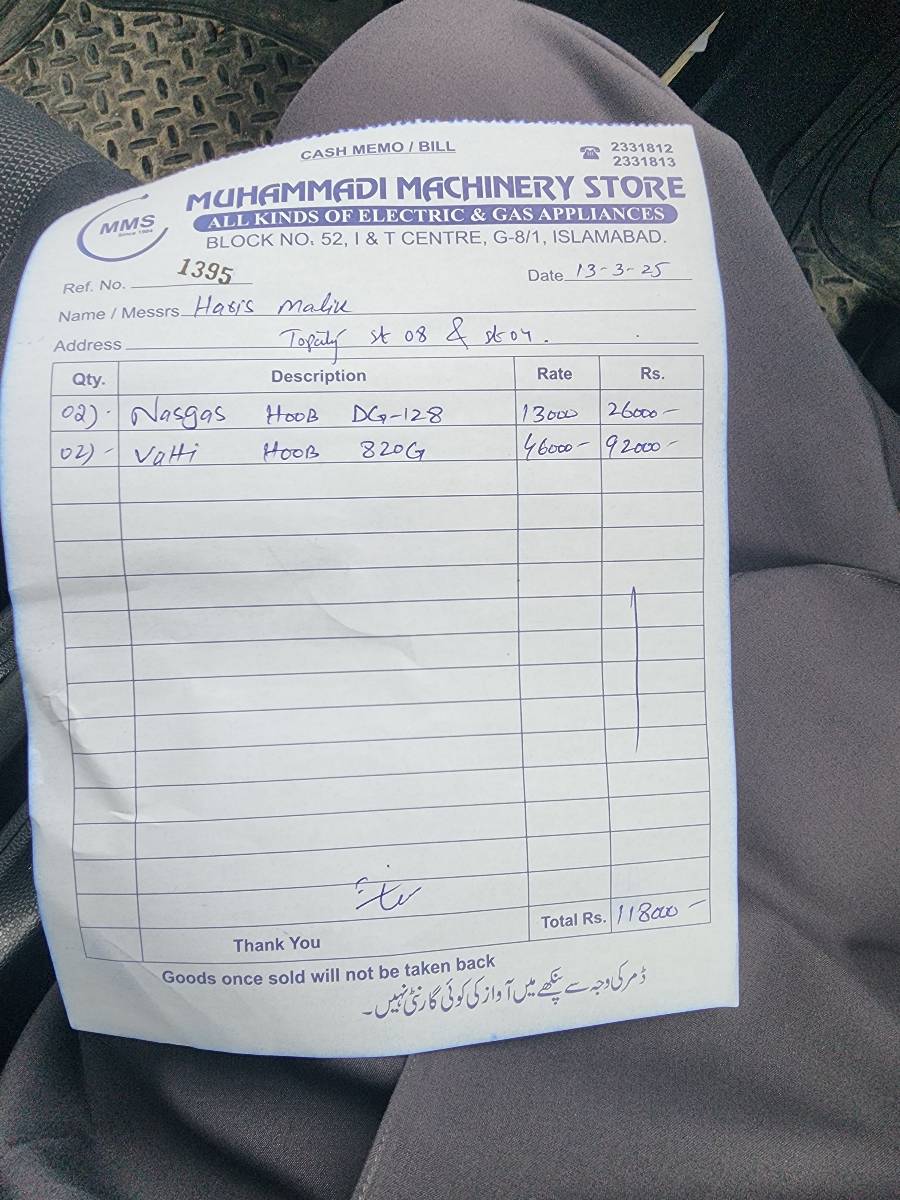 CASH MEMO / BILL
☎ 2331812
2331813
MMS
Since 1984
MUHAMMADI MACHINERY STORE
ALL KINDS OF ELECTRIC & GAS APPLIANCES
BLOCK NO. 52, I & T CENTRE, G-8/1, ISLAMABAD.
Ref. No. 1395 Date 13-3-25
Name / Messrs Haris Malik
Address Topcity st 08 & st 04.
Qty. Description Rate Rs.
02). Nasgas HOOB DG-128 13000 26000-
02)- Vatti HOOB 820G 46000- 92000-
Thank You Total Rs. 118000-
Goods once sold will not be taken back
ڈمر کی وجہ سے پنکھے میں آواز کی کوئی گارنٹی نہیں۔